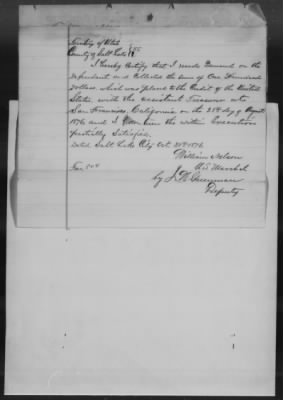 Territory of Utah
County of Salt Lake } SS
I hereby Certify that I made Demand on the
Defendant and Collected the sum of One Hundred
Dollars which was placed to the Credit of the United
States with the assistant Treasurer at
San Francisco California on the 21st day of August
1876 and I return the within Execution
partially Satisfied.
Dated Salt Lake City Oct 1876
William Nelson
U.S. Marshal
by
Deputy
Fees